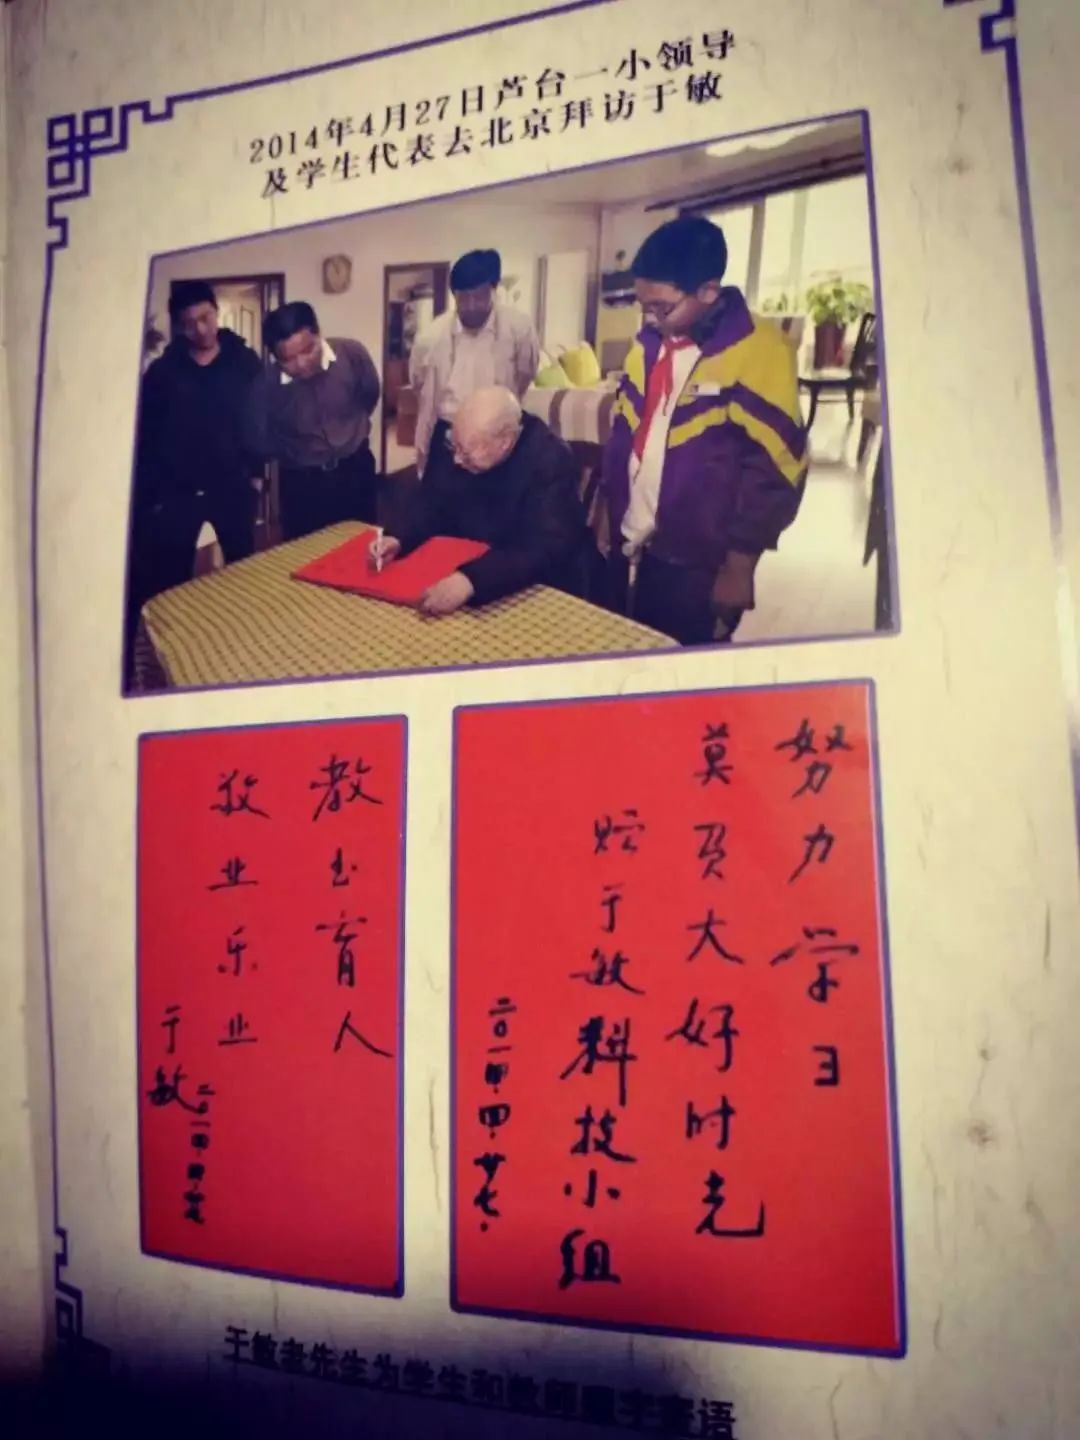 2014年4月27日芦台一小领导
及学生代表去北京拜访于敏
教书育人
敬业乐业
于敏
二〇一四·四·廿七
努力学习
莫负大好时光
贮于敏科技小组
二〇一四·四·廿七·
于敏老先生为学生和教师题字寄语